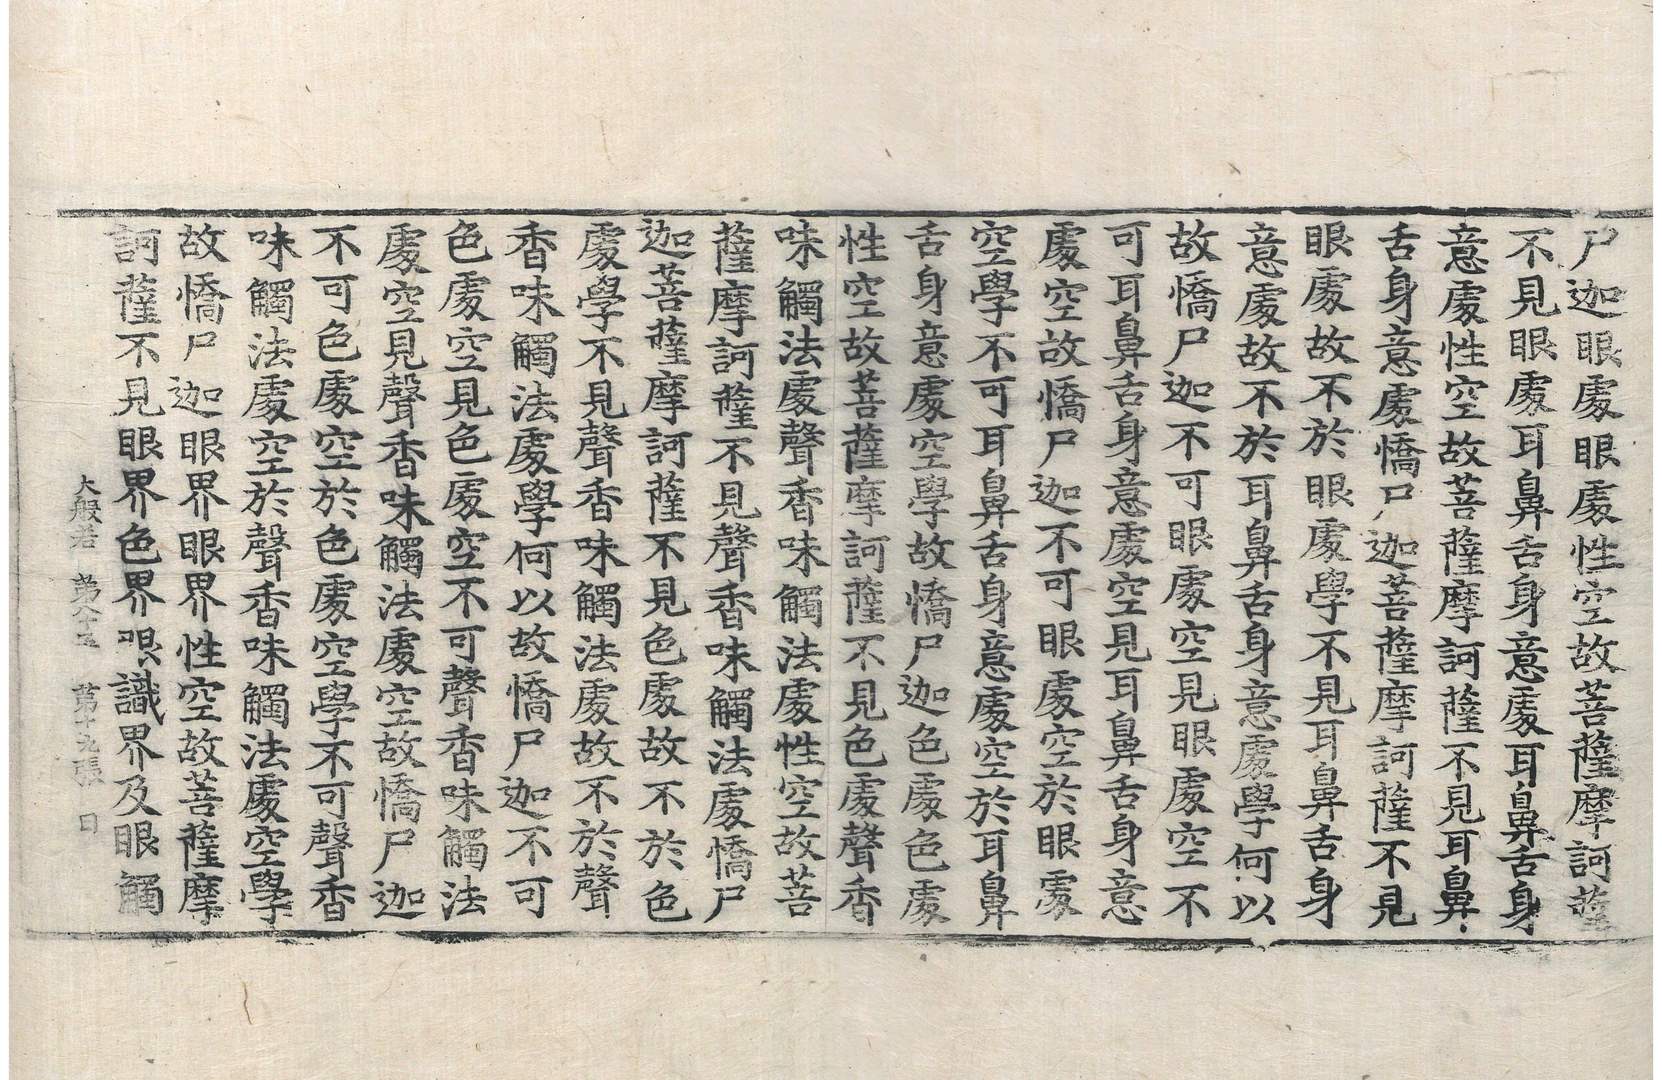 尸迦眼處眼處性空故菩薩摩訶薩
不見眼處耳鼻舌身意處耳鼻舌身
意處性空故菩薩摩訶薩不見耳鼻
舌身意處憍尸迦菩薩摩訶薩不見
眼處故不於眼處學不見耳鼻舌身
意處故不於耳鼻舌身意處學何以
故憍尸迦不可眼處空見眼處空不
可耳鼻舌身意處空見耳鼻舌身意
處空故憍尸迦不可眼處空於眼處
空學不可耳鼻舌身意處空於耳鼻
舌身意處空學故憍尸迦色處色處
性空故菩薩摩訶薩不見色處聲香
味觸法處聲香味觸法處性空故菩
薩摩訶薩不見聲香味觸法處憍尸
迦菩薩摩訶薩不見色處故不於色
處學不見聲香味觸法處故不於聲
香味觸法處學何以故憍尸迦不可
色處空見色處空不可聲香味觸法
處空見聲香味觸法處空故憍尸迦
不可色處空於色處空學不可聲香
味觸法處空於聲香味觸法處空學
故憍尸迦眼界眼界性空故菩薩摩
訶薩不見眼界色界眼識界及眼觸
大般若 第八十五 第十九張 日